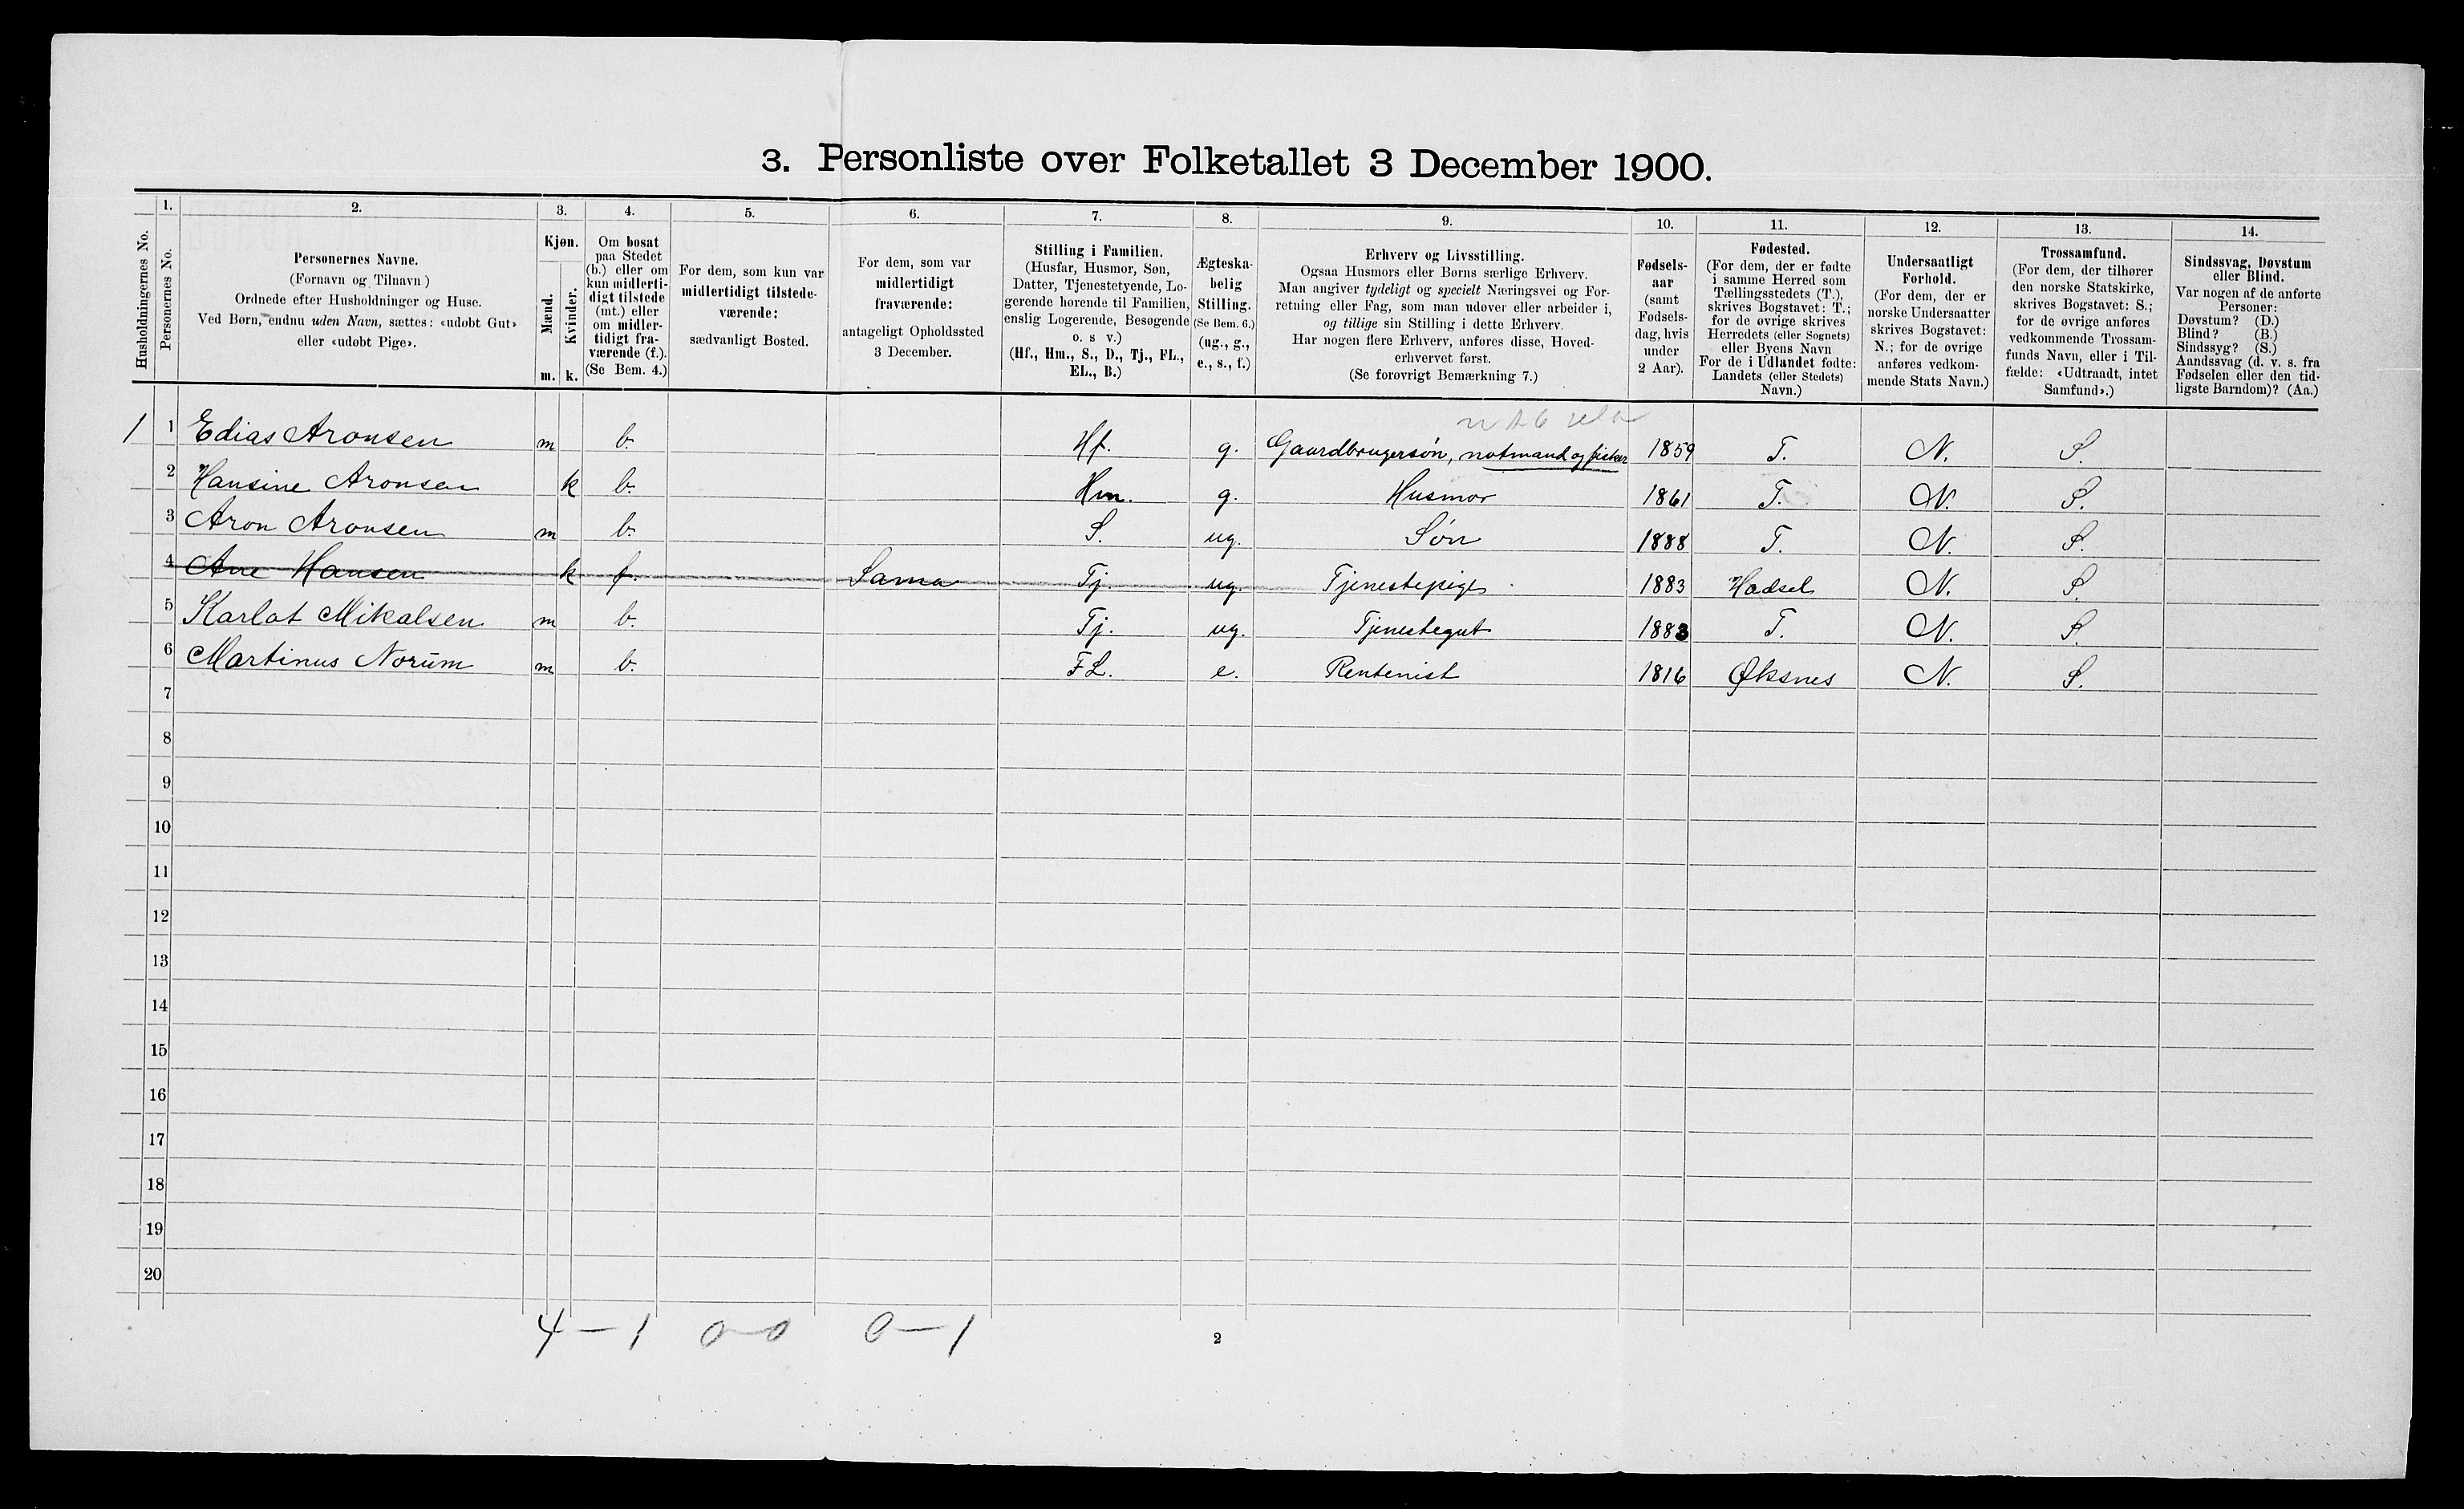 3. Personliste over Folketallet 3 December 1900.
Husholdningernes No.
1.
Personernes No.
2.
Personernes Navne.
(Fornavn og Tilnavn)
Ordnede efter Husholdninger og Huse.
Ved Børn, endnu uden Navn, sættes: «udøbt Gut»
eller «udøbt Pige».
3.
Kjøn.
Mænd.
Kvinder.
m. k.
4.
Om bosat
paa Stedet
(b.) eller om
kun midlerti-
digt tilstede
(mt.) eller
om midler-
tidigt fra-
værende (f.).
(Se Bem. 4.)
5.
For dem, som kun var
midlertidigt tilstede-
værende:
sædvanligt Bosted.
6.
For dem, som var
midlertidigt
fraværende:
antageligt Opholdssted
3 December.
7.
Stilling i Familien.
(Husfar, Husmor, Søn,
Datter, Tjenestetyende, Lo-
gerende hørende til Familien,
enslig Logerende, Besøgende
o. s v.)
(Hf., Hm., S., D., Tj., FL.,
EL., B.)
8.
Ægteska-
belig
Stilling.
(Se Bem. 6.)
(ug., g.,
e., s., f.)
9.
Erhverv og Livsstilling.
Ogsaa Husmors eller Børns særlige Erhverv.
Man angiver tydeligt og specielt Næringsvei og For-
retning eller Fag, som man udøver eller arbeider i,
og tillige sin Stilling i dette Erhverv.
Har nogen flere Erhverv, anføres disse, Hoved-
erhvervet først.
(Se forøvrigt Bemærkning 7.)
10.
Fødsels-
aar
(samt
Fødsels-
dag, hvis
under
2 Aar).
11.
Fødested.
(For dem, der er fødte
i samme Herred som
Tællingsstedets (T.),
skrives Bogstavet: T.;
for de øvrige skrives
Herredets (eller Sognets)
eller Byens Navn
For de i Udlandet fødte:
Landets (eller Stedets)
Navn.)
12.
Undersaatligt
Forhold.
(For dem, der er
norske Undersaatter
skrives Bogstavet:
N.; for de øvrige
anføres vedkom-
mende Stats Navn.)
13.
Trossamfund.
(For dem, der tilhører
den norske Statskirke,
skrives Bogstavet: S.;
for de øvrige anføres
vedkommende Trossam-
funds Navn, eller i Til-
fælde: «Udtraadt, intet
Samfund».)
14.
Sindssvag, Døvstum
eller Blind.
Var nogen af de anførte
Personer:
Døvstum? (D.)
Blind? (B.)
Sindssyg? (S.)
Aandssvag (d. v. s. fra
Fødselen eller den tid-
ligste Barndom)? (Aa.)
1 1 Edias Aronsen m b. Hf. g. Gaardbrugersøn, notmand og fisker 1859 T. N. S.
2 Hansine Aronsen k b. Hm. g. Husmor 1861 T. N. S.
3 Aron Aronsen m b. S. ug. Søn 1888 T. N. S.
4 Ane Hansen k f. Sama Tj. ug. Tjenestepige 1883 Hadsel N. S.
5 Karlot Mikalsen m b. Tj. ug. Tjenestegut 1883 T. N. S.
6 Martinus Norum m b. FL. e. Rentenist 1816 Øksnes N. S.
7
8
9
10
11
12
13
14
15
16
17
18
19
20
4 - 1 0-0 0 - 1
2